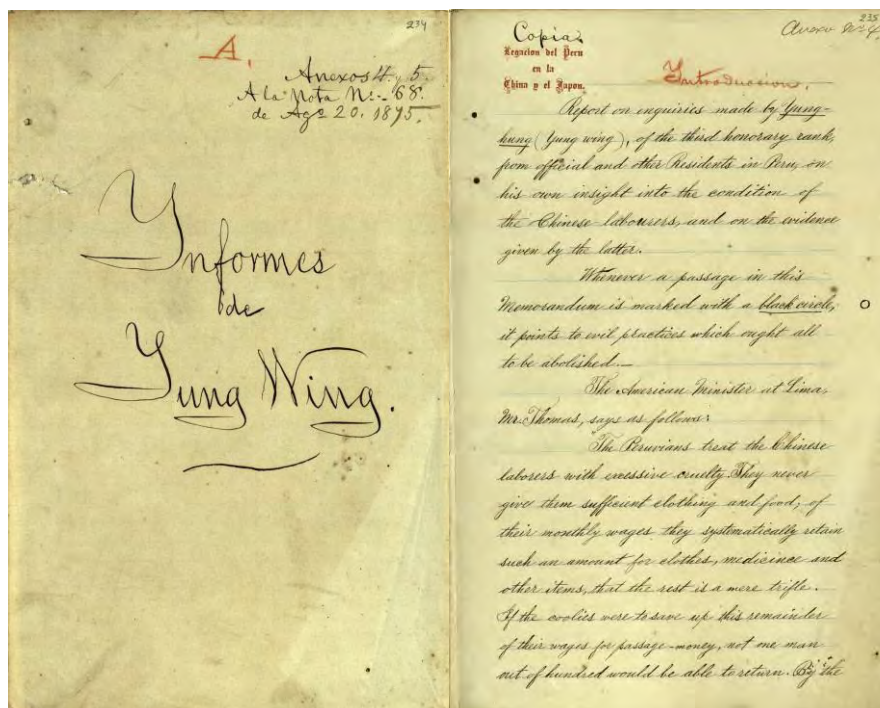 234
A.
Anexos 4. y 5.
A la Nota No. 68.
de Ago 20. 1875.
Informes
de
Yung Wing.
235
Copia.
Anexo No 4
Legacion del Peru
en la
China y el Japon.
Introduccion.
Report on enquiries made by Yung-
hung (Yung wing), of the third honorary rank,
from official and other Residents in Peru, on
his own insight into the condition of
the Chinese labourers, and on the evidence
given by the latter.
Whenever a passage in this
Memorandum is marked with a black circle,
it points to evil practices which ought all
to be abolished.—
The American Minister at Lima,
Mr. Thomas, says as follows:
The Peruvians treat the Chinese
laborers with excessive cruelty. They never
give them sufficient clothing and food, of
their monthly wages they systematically retain
such an amount for clothes, medicince and
other items, that the rest is a mere trifle.
If the coolies were to save up this remainder
of their wages for passage-money, not one man
out of hundred would be able to return. By the